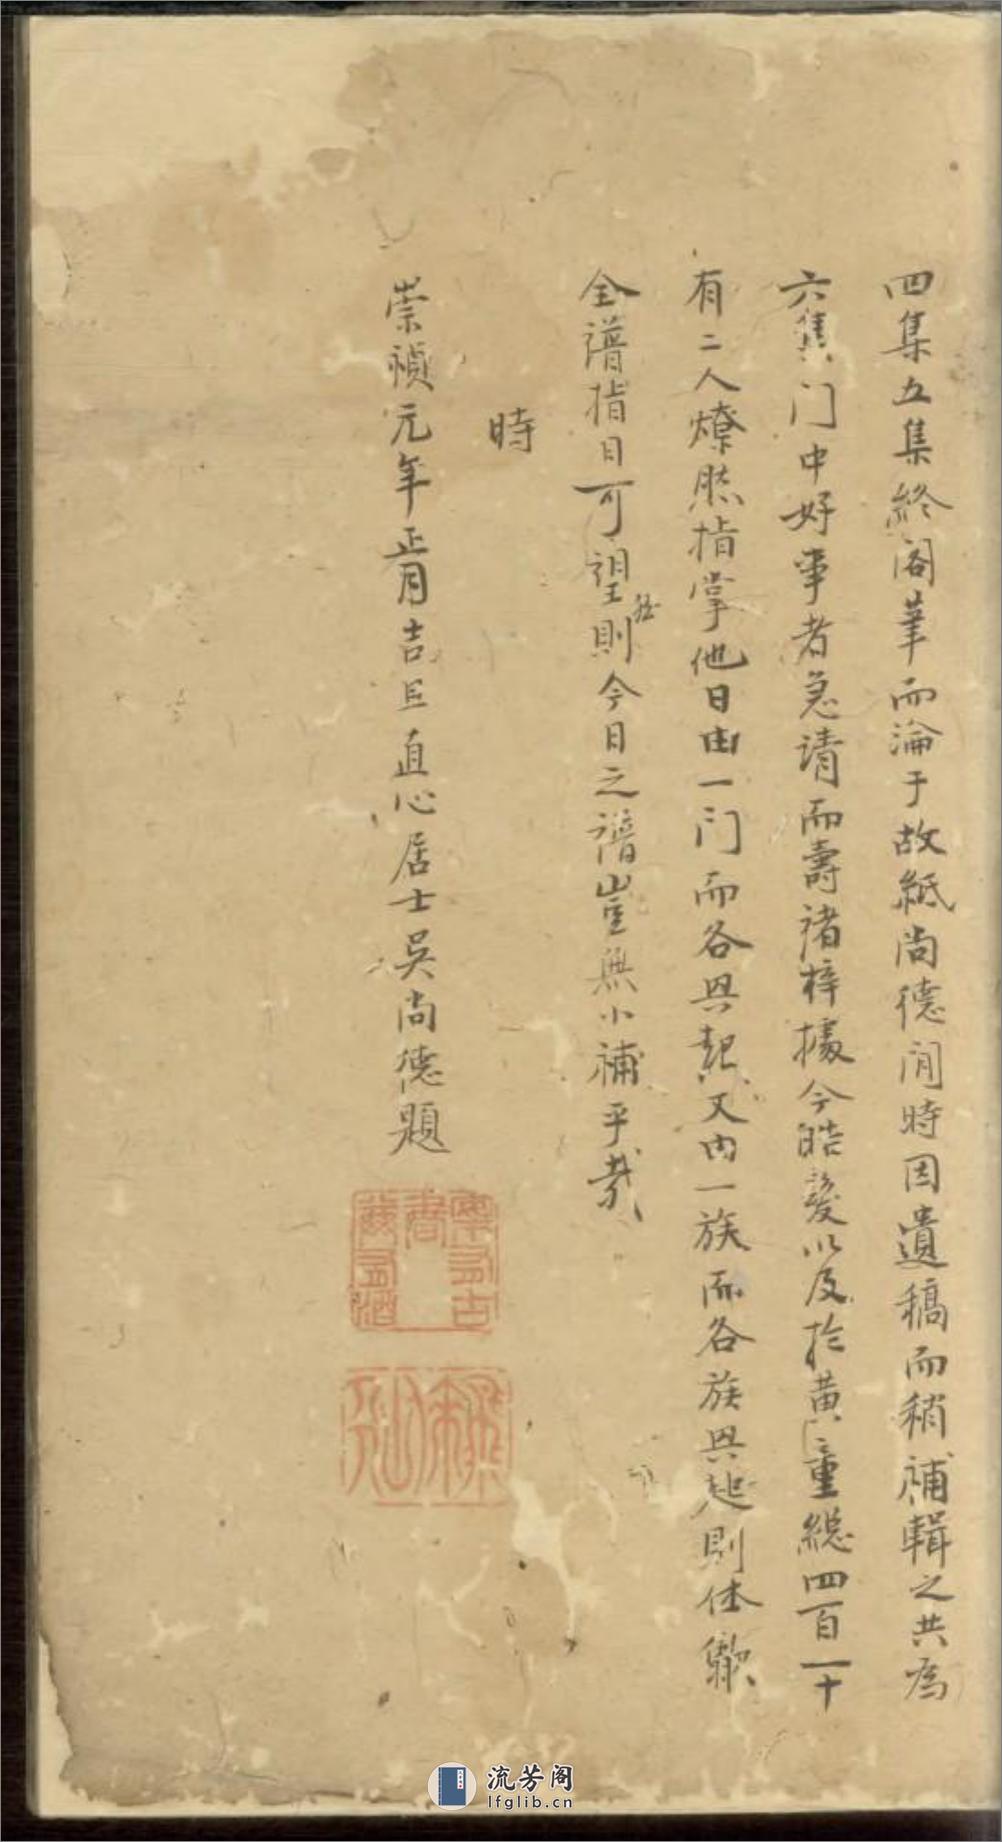 四集五集終阁筆而淪于故紙尚德閒時因遺稿而稍補輯之共為
六集门中好事者急请而壽諸梓據今皓髮以及於黄童總四百一十
有二人燎然指掌他日由一门而各興起又由一族而各族興起則休歟
全譜指日可望則今日之譜豈無小補乎哉
時
崇禎元年正月吉旦直心居士吳尚德題
流芳阁
lfglib.cn